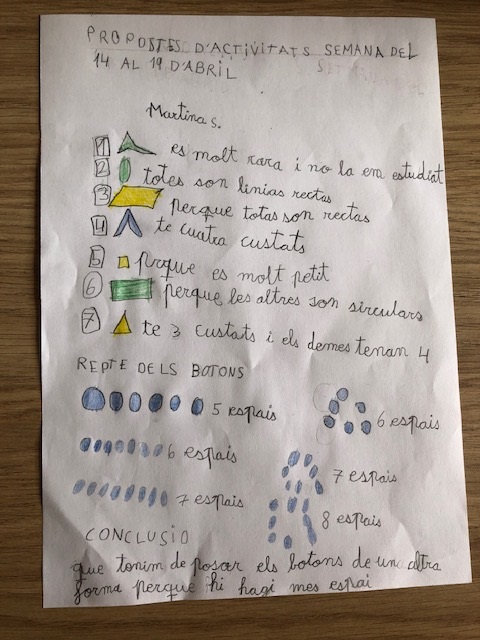 PROPOSTES D'ACTIVITATS SEMANA DEL
14 AL 19 D'ABRIL
Martina S.
1 es molt rara i no la em estudiat
2 totes son linias rectas
3 perque totas son rectas
4 te cuatra custats
5 prque es molt petit
6 perque les altres son sirculars
7 te 3 custats i els demes tenan 4
REPTE DELS BOTONS
5 espais
6 espais
6 espais
7 espais
7 espais
8 espais
CONCLUSIO
que tonim de posar els botons de un altra
forma perque hi hagi mes espai